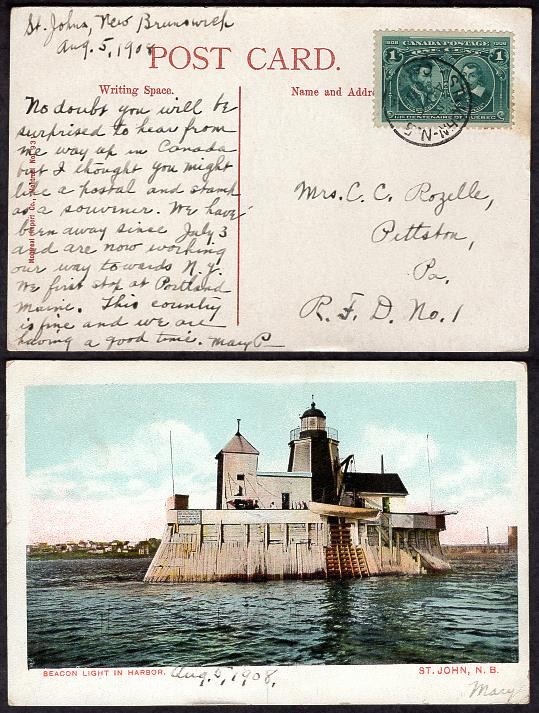 St. Johns, New Brunswick
Aug. 5, 1908
POST CARD.
Writing Space.
Name and Addre
CANADA POSTAGE
1608
1908
1 1
IIIE CENTENAIRE DE QUEBEC
No doubt you will be
surprised to hear from
me way up in Canada
but I thought you might
like a postal and stamp
as a souvenir. We have
been away since July 3
and are now working
our way towards N.Y.
We first stop at Portland
Maine. This country
is fine and we are
having a good time. Mary P
Montreal Import Co., Montreal No.
Mrs. C. C. Rozelle,
Pittston,
Pa,
R. F. D. No. 1
BEACON LIGHT IN HARBOR. Aug. 5, 1908.
ST. JOHN, N. B.
Mary